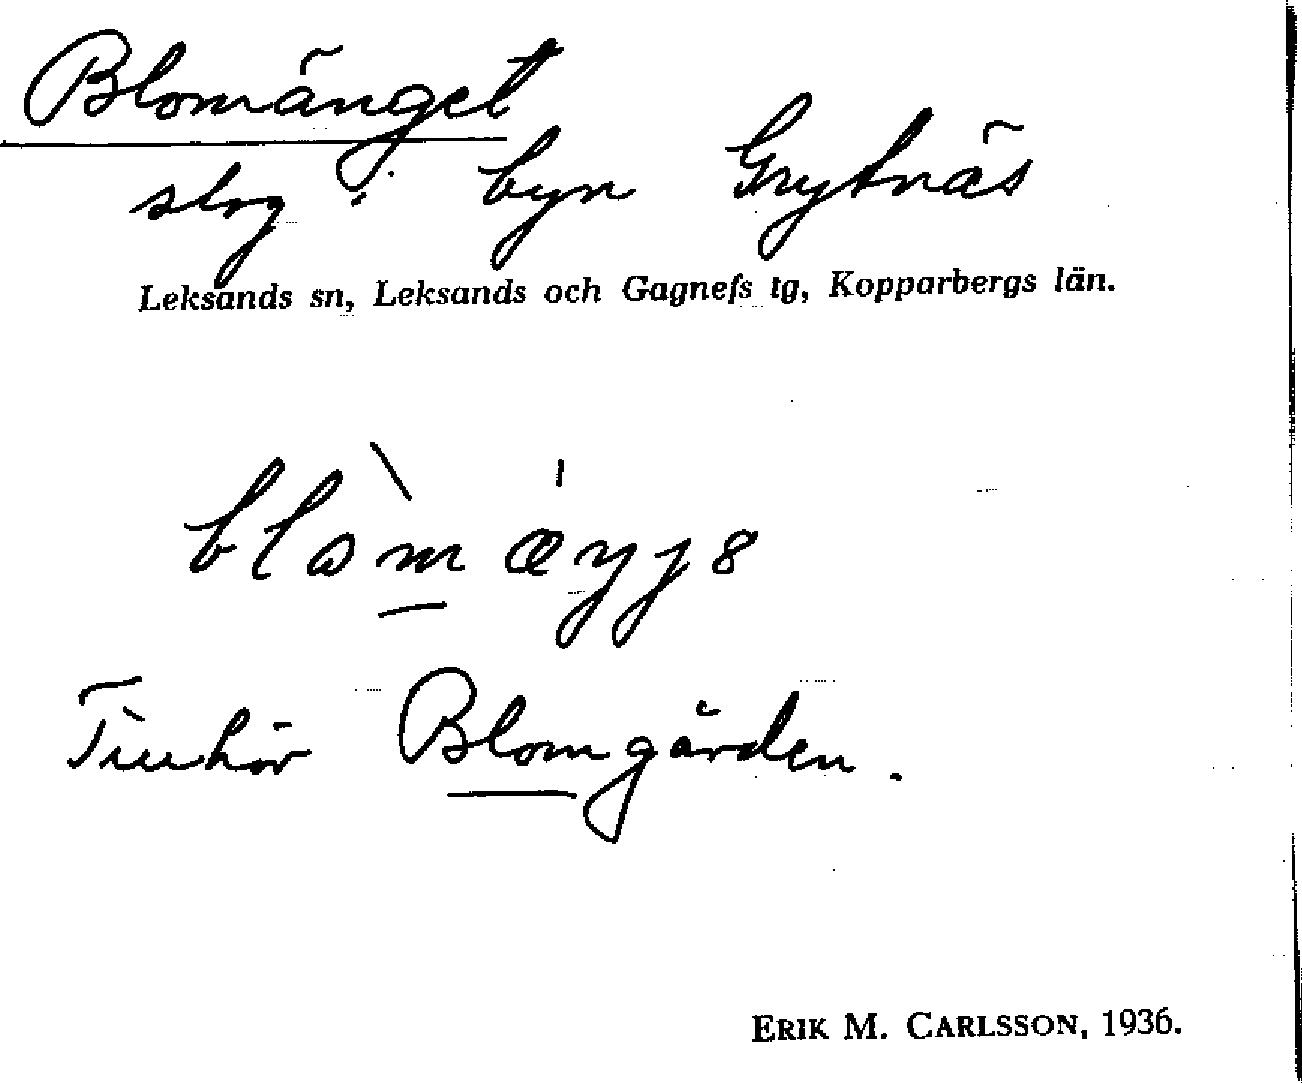 Blomänget
slog i byn Grytnäs
Leksands sn, Leksands och Gagnefs tg, Kopparbergs län.
Tillhör Blomgården.
ERIK M. CARLSSON, 1936.